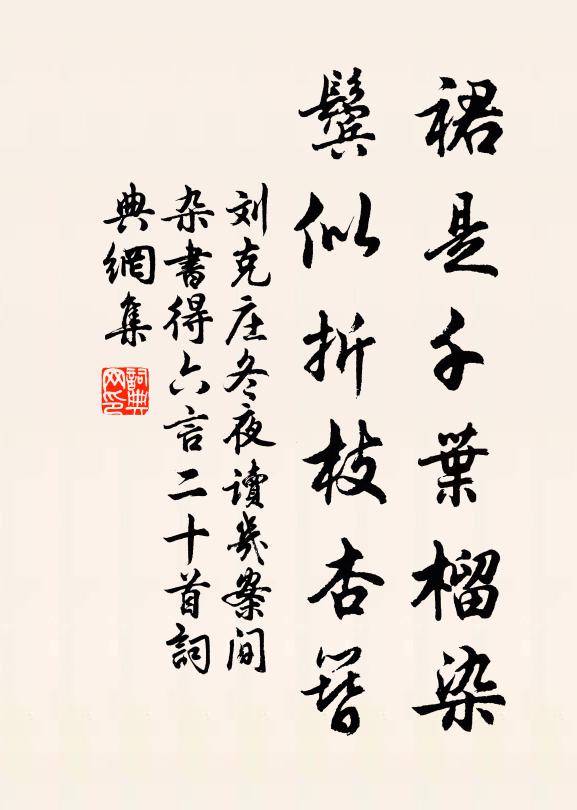 裙是千葉榴染
鬓似折枝杏簪
刘克庄冬夜讀㡬案间
杂書得六言二十首詞
典網集
詞典
网印